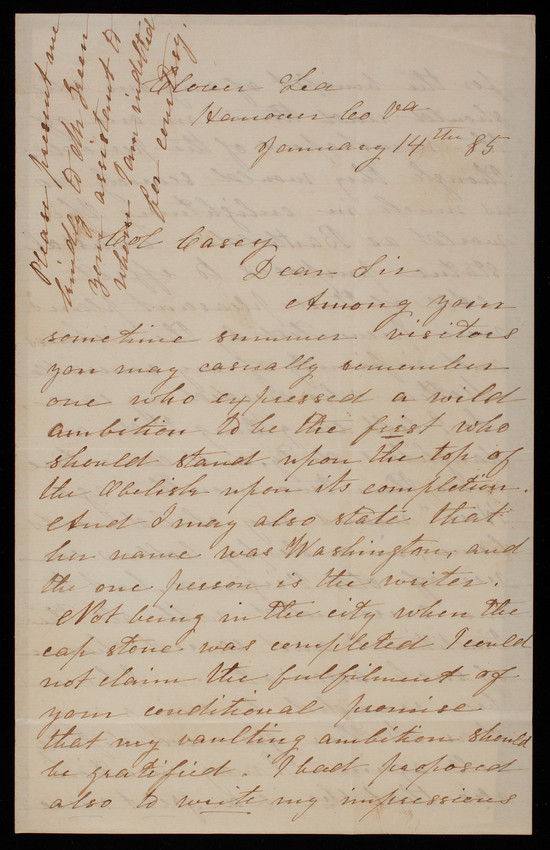 Clover Lea
Hanover Co. Va
January 14th 85
Col Casey
Dear Sir
Among your
sometime summer visitors
you may casually remember
one who expressed a wild
ambition to be the first who
should stand upon the top of
the Obelisk upon its completion.
And I may also state that
her name was Washington, and
the one person is the writer.
Not being in the city when the
cap stone was completed I could
not claim the fulfilment of
your conditional promise
that my vaulting ambition should
be gratified. I had proposed
also to write my impressions
Please present me
kindly to Mr Green
your assistant to
whom I am indebted
for courtesy.